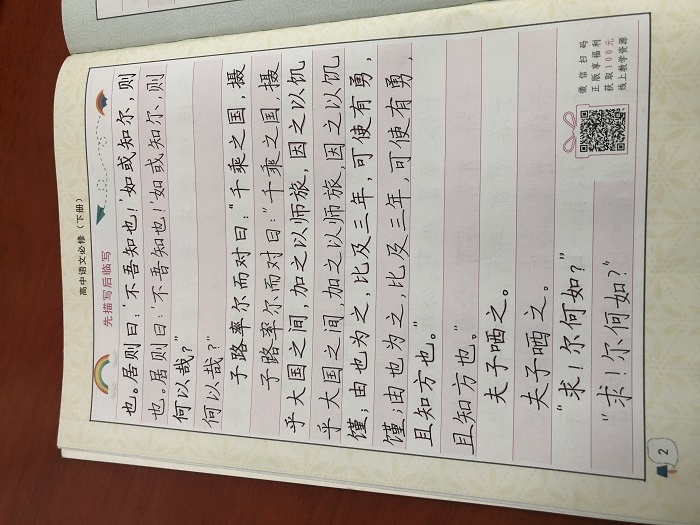 高中语文必修（下册）
先描写后临写
也。居则曰：‘不吾知也！’如或知尔，则
也。居则曰：‘不吾知也！’如或知尔，则
何以哉？”
何以哉？”
子路率尔而对曰：“千乘之国，摄
子路率尔而对曰：“千乘之国，摄
乎大国之间，加之以师旅，因之以饥
乎大国之间，加之以师旅，因之以饥
馑；由也为之，比及三年，可使有勇，
馑；由也为之，比及三年，可使有勇，
且知方也。”
且知方也。”
夫子哂之。
夫子哂之。
“求！尔何如？”
“求！尔何如？”
微信扫码
正版享福利
获取100元
线上教学资源
2